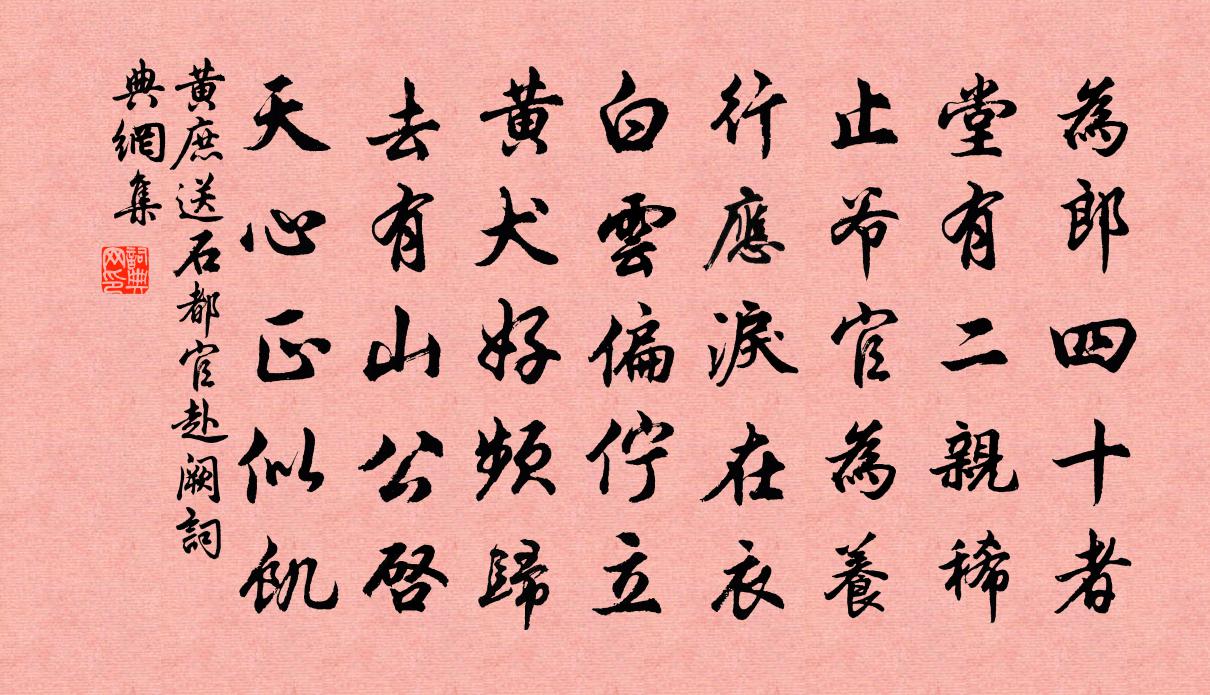 為郎四十者
堂有二親稀
止爷官為養
行應淚在衣
白雲偏佇立
黃犬好頻歸
去有山公啓
天心正似飢
黃庶送石都官赴阙詞
典網集
詞典
网印